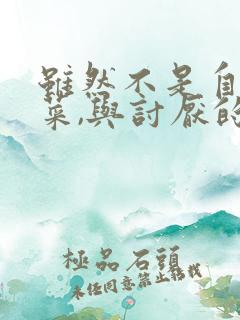 雖然不是自
菜,與討厭的
極品石頭
未任同意禁止轉載